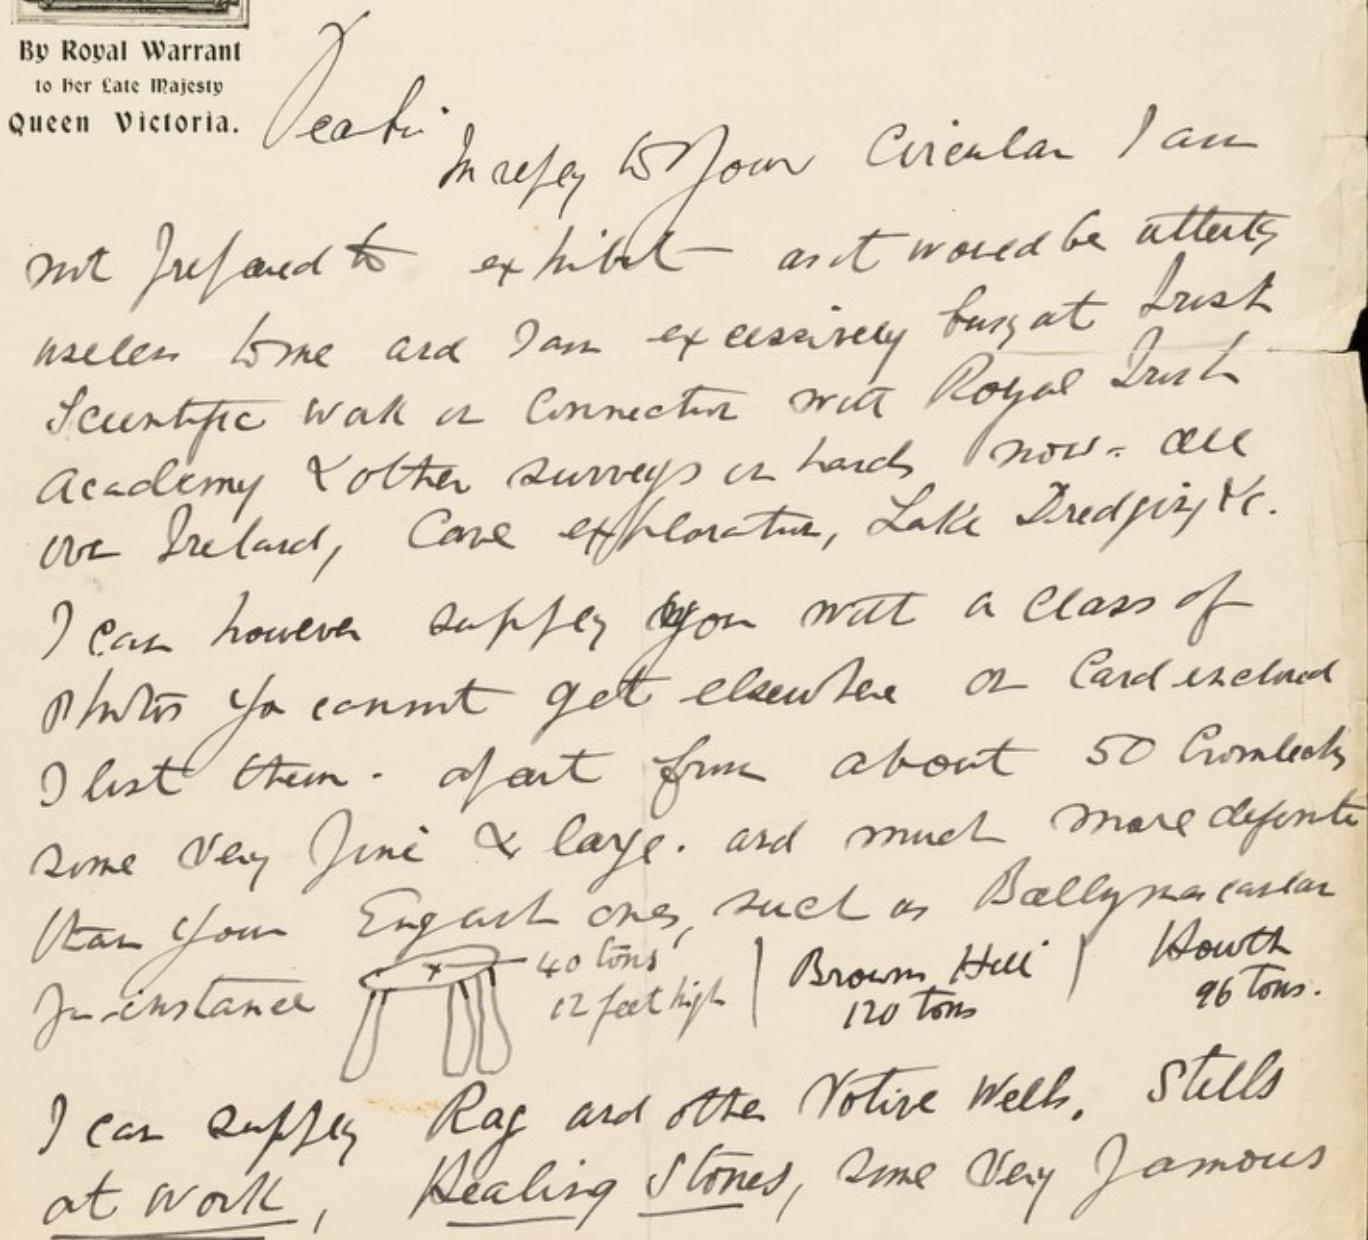 By Royal Warrant
to Her Late Majesty
Queen Victoria.
Dear Sir
In reply to your Circular I am
not prepared to exhibit — as it would be utterly
useless to me and I am excessively busy at Irish
Scientific work in connection with Royal Irish
Academy & other surveys in hands now - all
over Ireland, Cave exploration, Lake Dredging &c.
I can however supply you with a class of
photos you cannot get elsewhere on Card enclosed
I list them - apart from about 50 Cromlechs
some very fine & large. and much more definite
than your English ones, such as
for instance 40 tons 12 feet high | Browns Hill 120 tons | Howth 96 tons.
I can supply Rag and other Votive Wells, Stills
at work, Healing Stones, some very famous